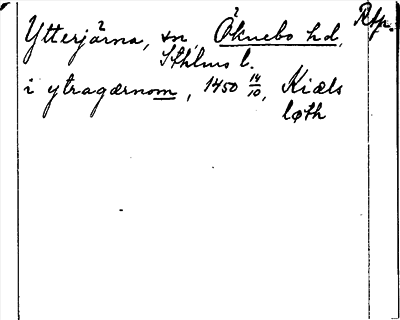 Ytterjärna, sn Öknebo hd, Rtp.
Sthlms l.
i ytragærnom, 1450 14/10, Kiæls
løth